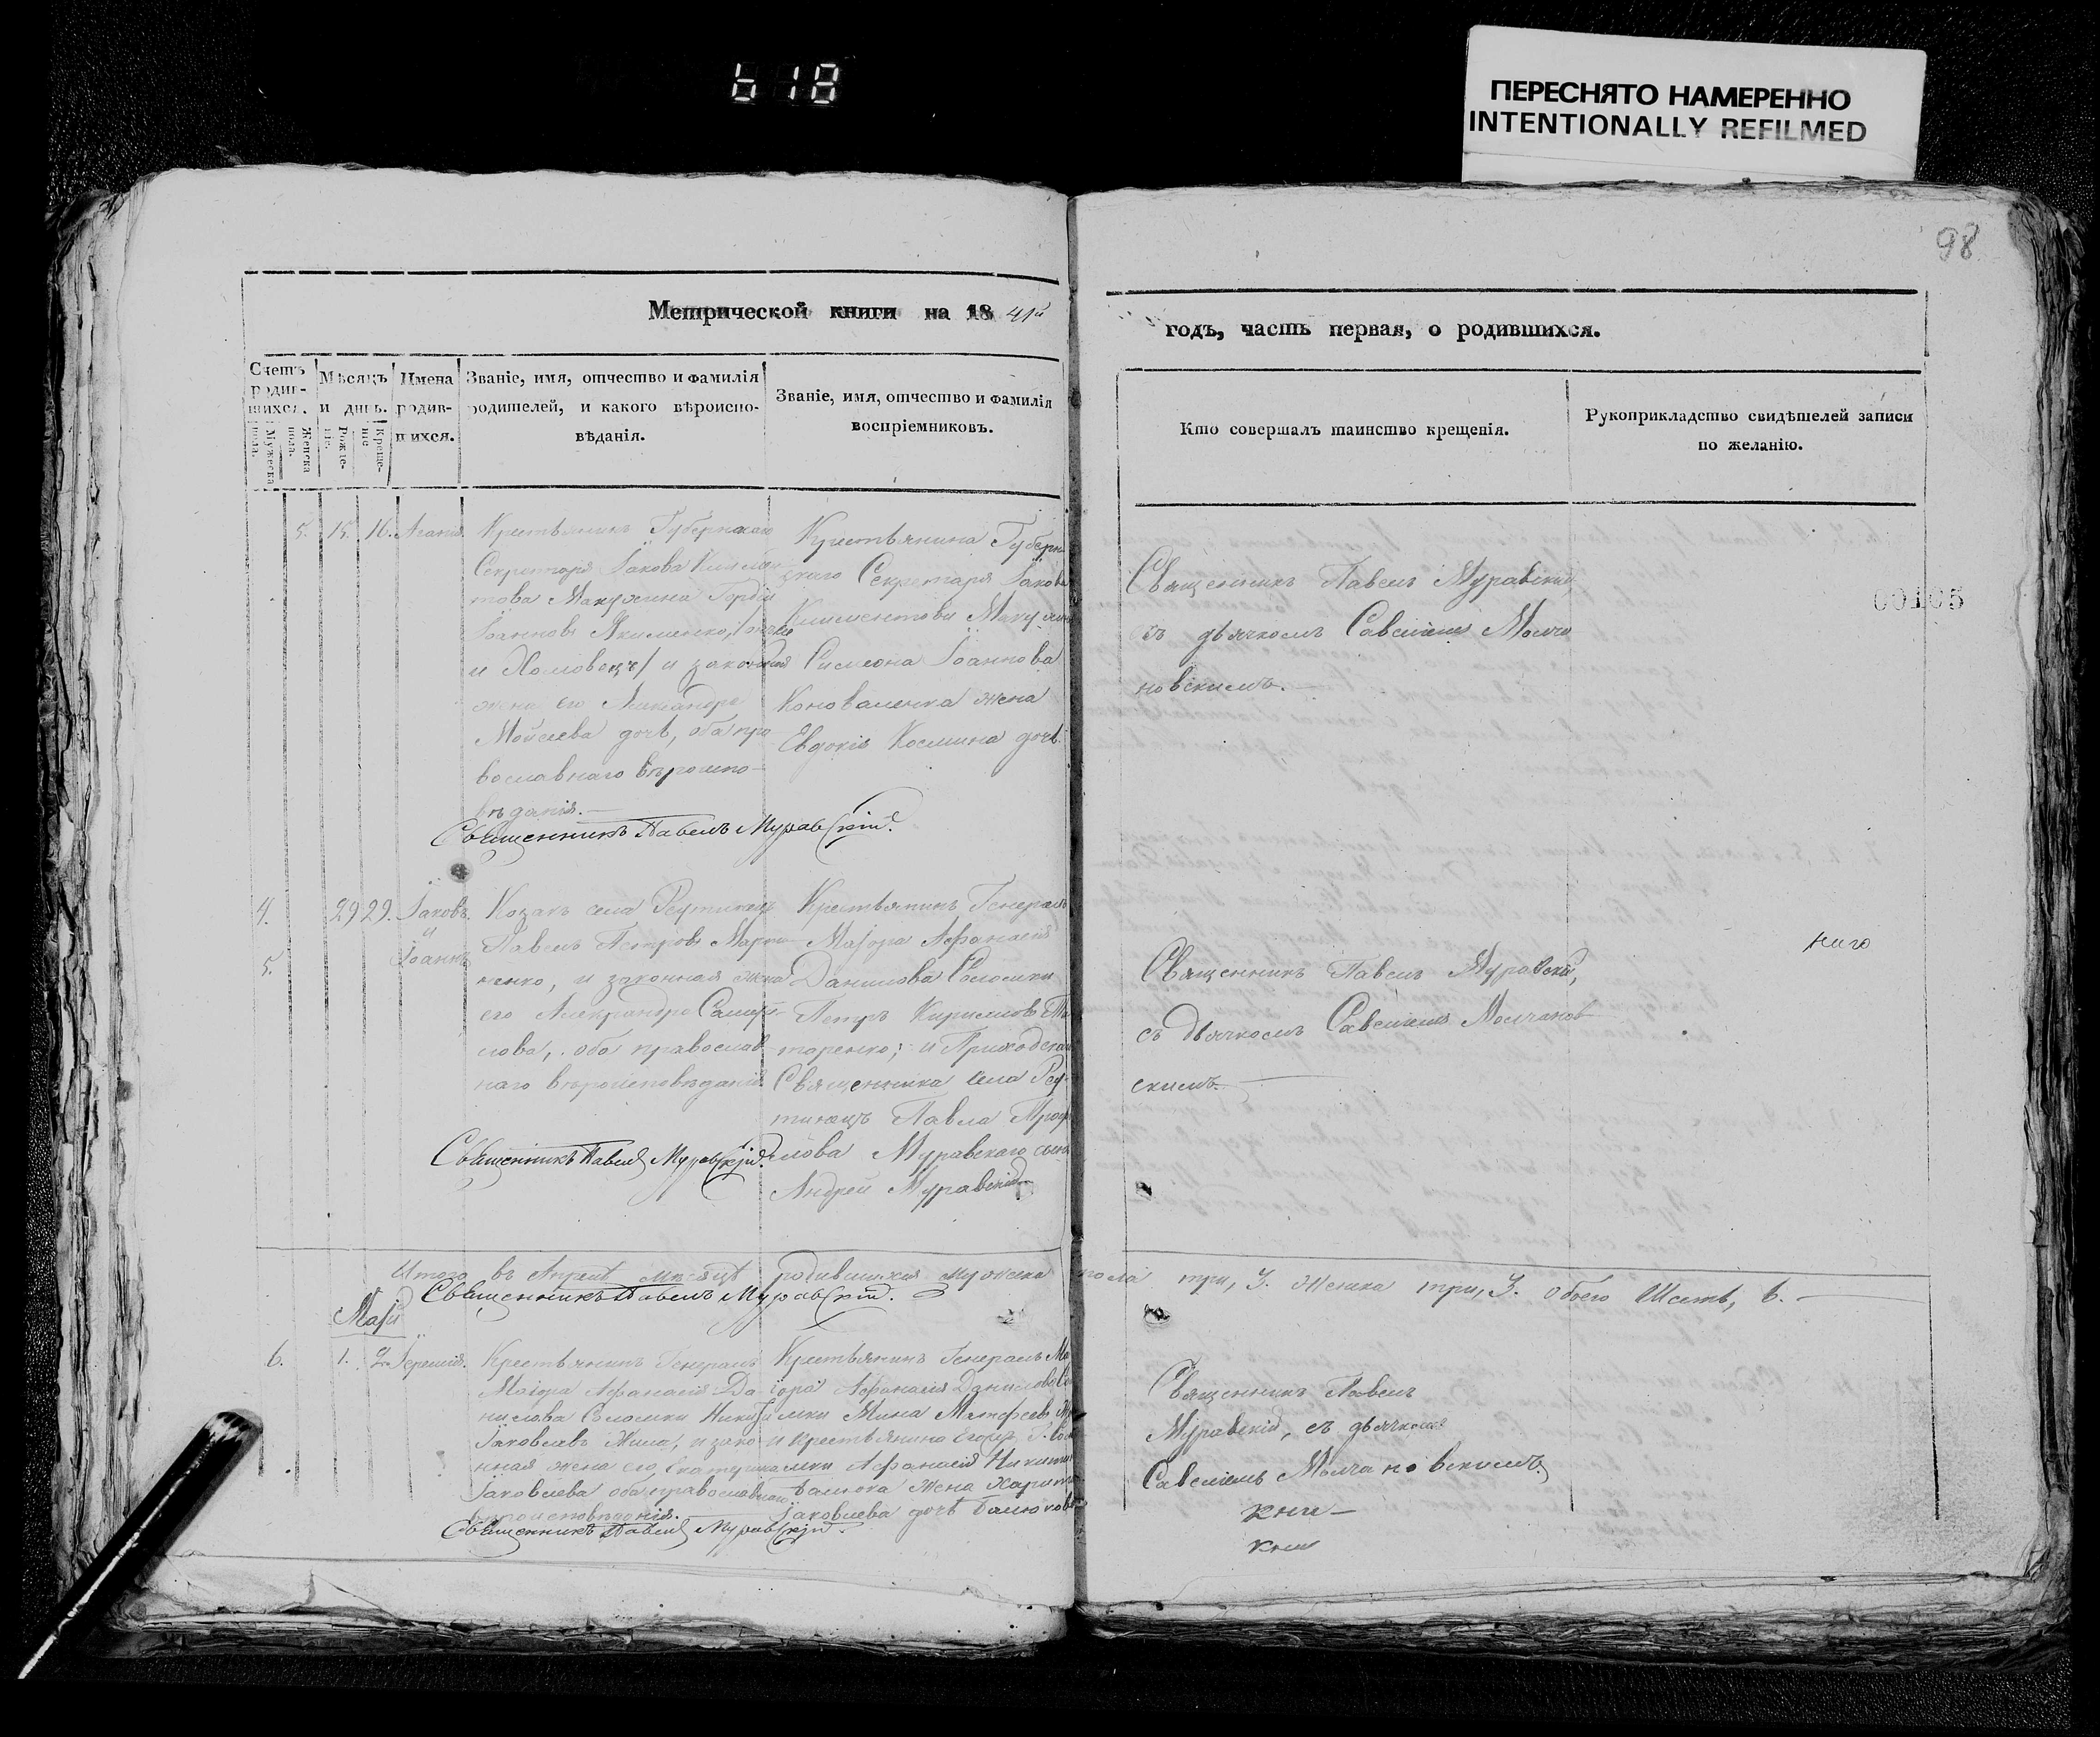 618
ПЕРЕСНЯТО НАМЕРЕННО
INTENTIONALLY REFILMED
98
Метрической книги на 1841й
годъ, часть первая, о родившихся.
Счетъ родив-шихся.
Мужеска пола.
Женска пола.
Мѣсяцъ и день.
Рожде-ніе.
Креще-ніе
Имена родив-шихся.
Званіе, имя, отчество и фамилія
родителей, и какого вѣроиспо-
вѣданія.
Званіе, имя, отчество и фамилія
воспріемниковъ.
Кто совершалъ таинство крещенія.
Рукоприкладство свидѣтелей записи
по желанію.
5. 15. 16. Агапія.
Крестьянинъ Губернскаго
Секретаря Іакова
това Гордій
Іоанновъ Якименко,
и Холовецъ/ и законная
жена его Александра
Мойсеева дочь, оба пра
вославнаго вѣроиспо-
вѣданія.
Крестьянина Губерн
скаго Секретаря Іакова
Климентова
Симеона Іоаннова
Коноваленка жена
Евдокія Космина дочь
Священникъ Павелъ Муравскій,
съ дьячкомъ Савеліемъ Молча
новскимъ.
00105
Священникъ Павелъ Муравскій.
4. 29 29. Іаковъ
и
5. Іоаннъ
Козакъ села Реутинецъ
Павелъ Петровъ Марти
ненко, и законная жена
его Александра Самой
лова, оба православ
наго вѣроисповѣданія
Крестьянинъ Генералъ
Маіора Афанасія
Данилова Соломки
Петръ Кириловъ Ти
торенко; и Приходскаго
Священника села Реу
тинецъ Павла
Муравскаго сынъ
Андрей Муравскій
Священникъ Павелъ Муравскій,
съ дьячкомъ Савеліемъ Молчанов
скимъ.
Священникъ Павелъ Муравскій.
Итого въ Апрелѣ мѣсяцѣ родившихся мужеска пола три, 3. женска три, 3. обоего Шесть, 6.
Священникъ Павелъ Муравскій.
Маій
6. 1. 2. Іеремія.
Крестьянинъ Генералъ
Маіора Афанасія Да
нилова Соломки Никита
Іаковлевъ Жила, и зако
нная жена его, Екатерина
Іаковлева оба православнаго
вѣроисповѣданія.
Крестьянинъ Генералъ Ма
іора Афанасія Данилова Со
ломки Мина Матфеевъ
и крестьянина
ломки Афанасія Никитина
Балюка жена
Іаковлева дочь Балюкова
Священникъ Павелъ
Муравскій, съ дьячкомъ
Савеліемъ Молчановскимъ.
Священникъ Павелъ Муравскій.
книг